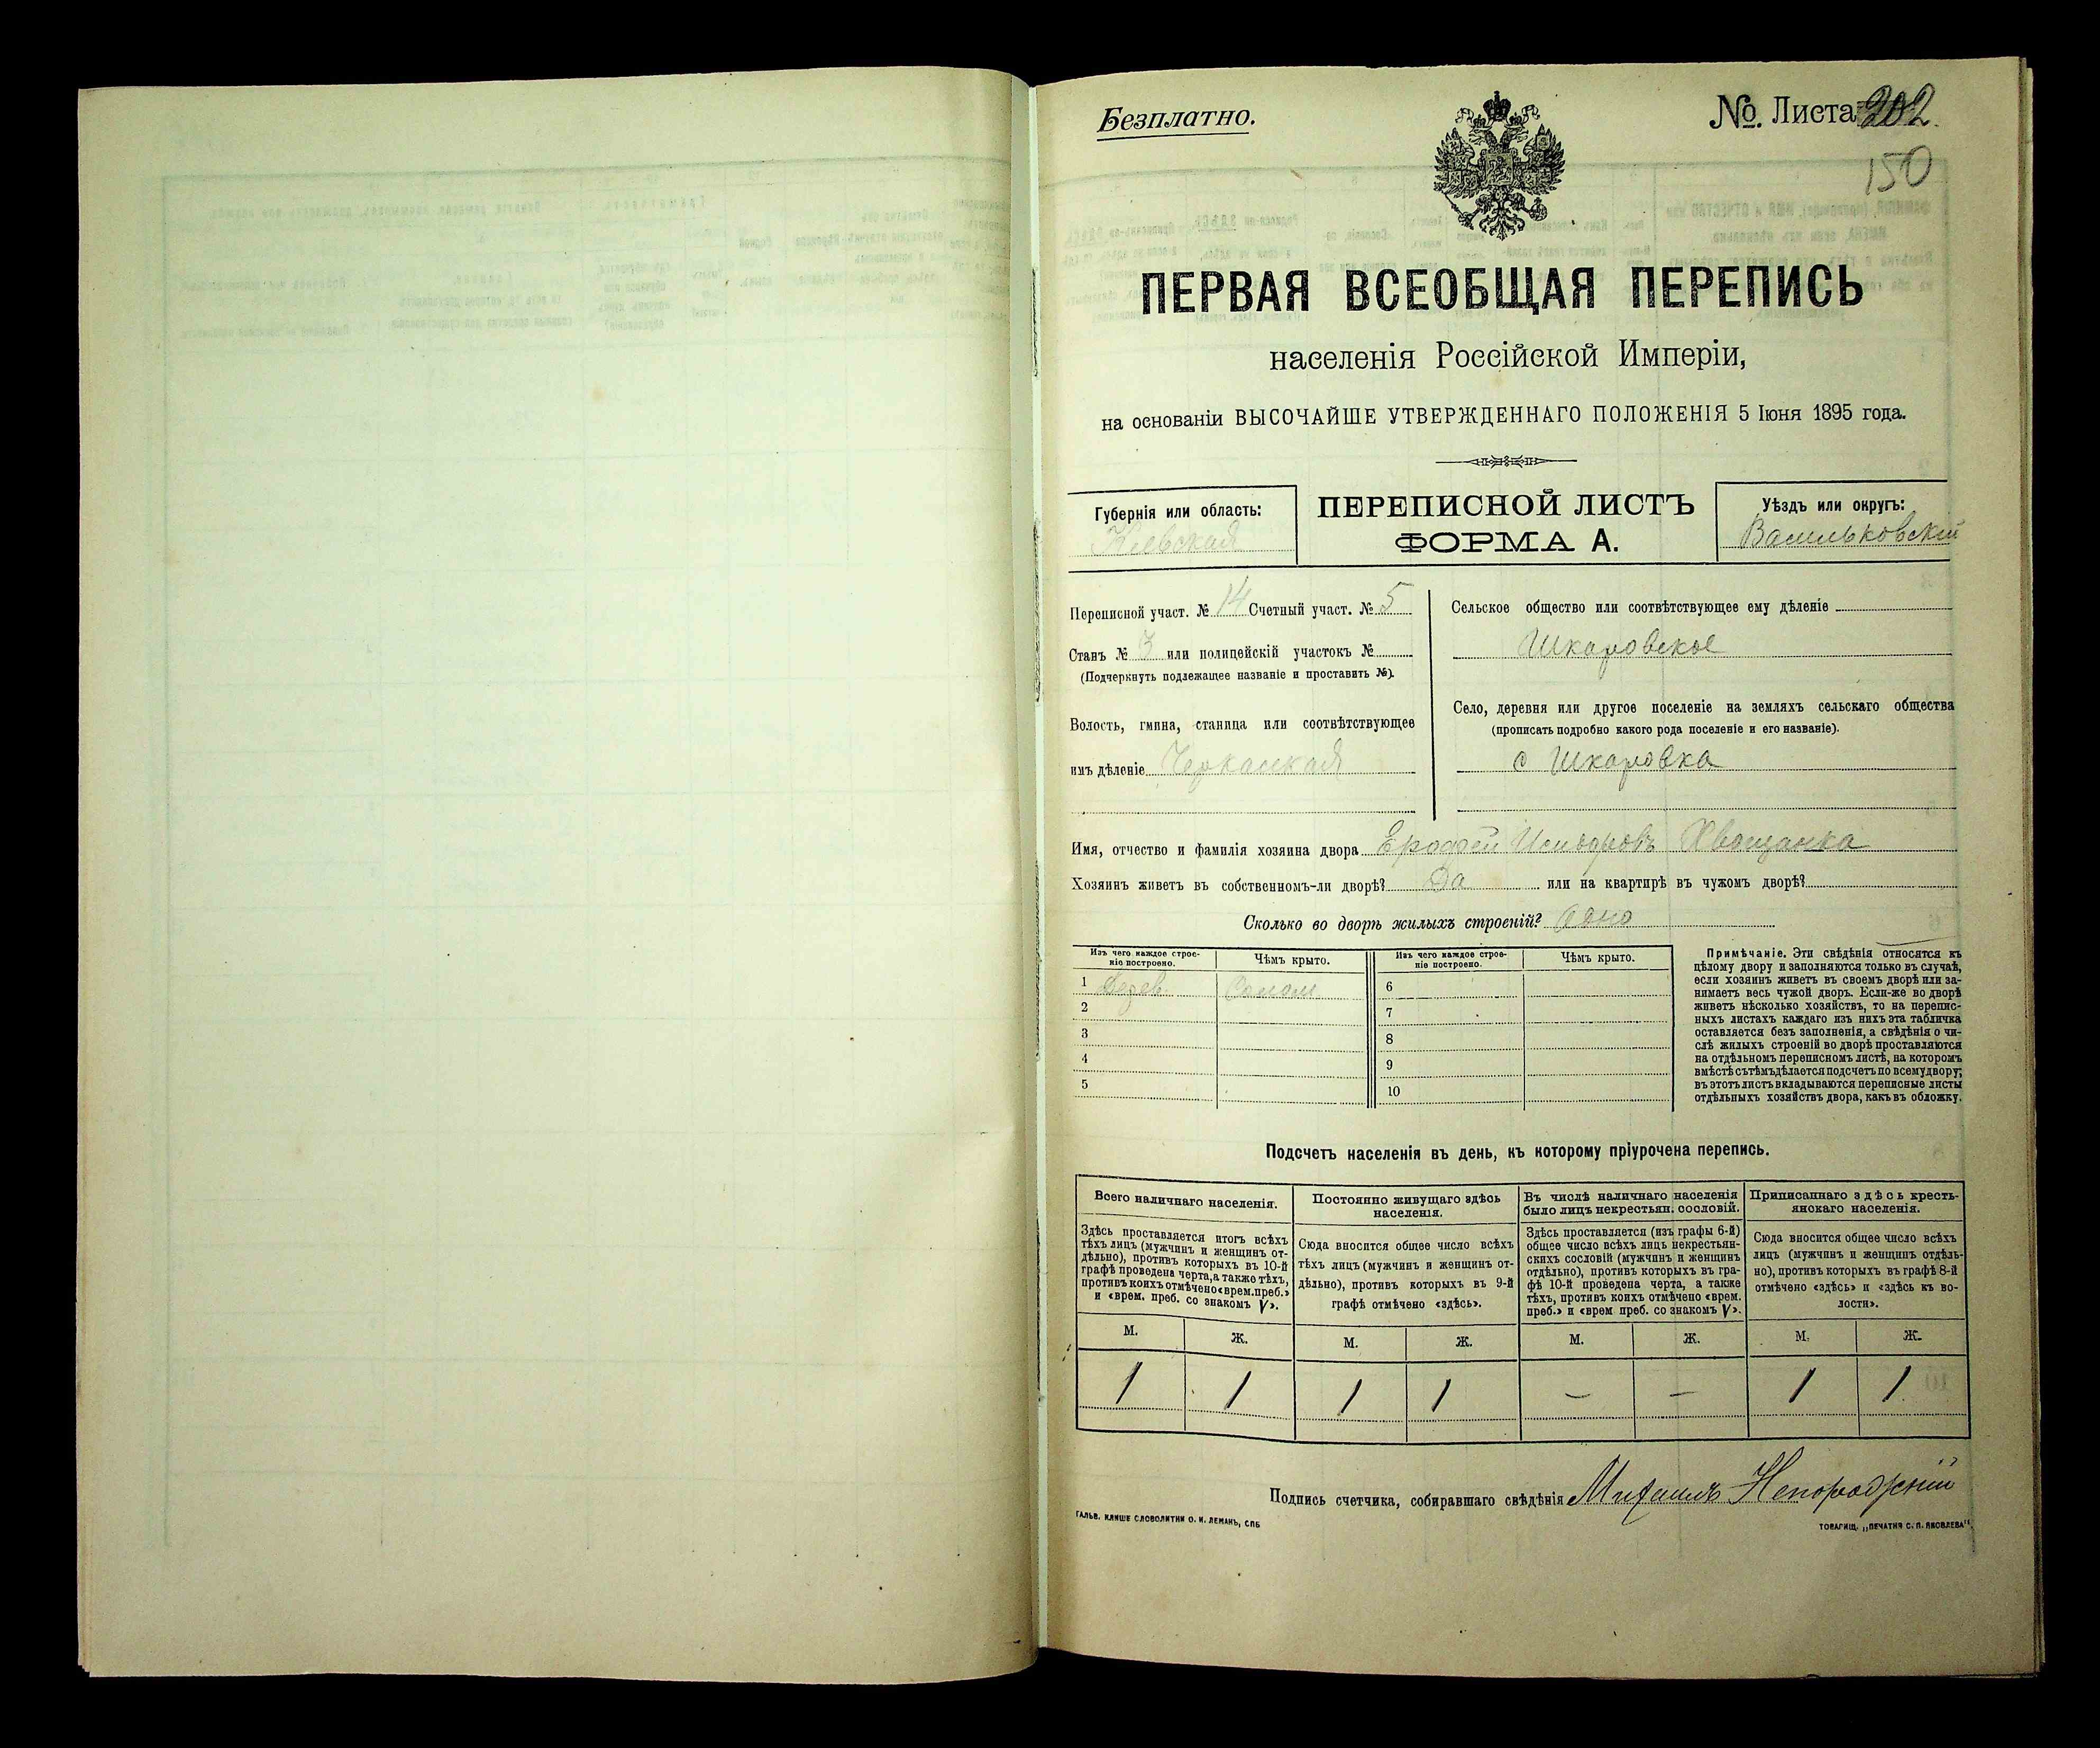 Безплатно.
№ Листа 202.
150
ПЕРВАЯ ВСЕОБЩАЯ ПЕРЕПИСЬ
населенія Россійской Имперіи,
на основаніи ВЫСОЧАЙШЕ УТВЕРЖДЕННАГО ПОЛОЖЕНІЯ 5 Іюня 1895 года.
Губернія или область:
Кіевская
ПЕРЕПИСНОЙ ЛИСТЪ
ФОРМА А.
Уѣздъ или округъ:
Васильковскій
Переписной участ. № 14 Счетный участ. № 5
Станъ № 3 или полицейскій участокъ №
(Подчеркнуть подлежащее названіе и проставить №).
Волость, гмина, станица или соотвѣтствующее
имъ дѣленіе Черкасская
Сельское общество или соотвѣтствующее ему дѣленіе
Шкаровское
Село, деревня или другое поселеніе на земляхъ сельскаго общества
(прописать подробно какого рода поселеніе и его названіе).
с Шкаровка
Имя, отчество и фамилія хозяина двора Ерофей Исидоровъ Хващанка
Хозяинъ живетъ въ собственномъ-ли дворѣ? Да или на квартирѣ въ чужомъ дворѣ?
Сколько во дворѣ жилыхъ строеній? Одно
Изъ чего каждое строе-
ніе построено.
Чѣмъ крыто.
Изъ чего каждое строе-
ніе построено.
Чѣмъ крыто.
1 Дерев. Солом
2
3
4
5
6
7
8
9
10
Примѣчаніе. Эти свѣдѣнія относятся къ
цѣлому двору и заполняются только въ случаѣ,
если хозяинъ живетъ въ своемъ дворѣ или за-
нимаетъ весь чужой дворъ. Если-же во дворѣ
живетъ нѣсколько хозяйствъ, то на перепис-
ныхъ листахъ каждаго изъ нихъ эта табличка
оставляется безъ заполненія, а свѣдѣнія о чи-
слѣ жилыхъ строеній во дворѣ проставляются
на отдѣльномъ переписномъ листѣ, на которомъ
вмѣстѣ съ тѣмъ дѣлается подсчетъ по всему двору;
въ этотъ листъ вкладываются переписные листы
отдѣльныхъ хозяйствъ двора, какъ въ обложку.
Подсчетъ населенія въ день, къ которому пріурочена перепись.
Всего наличнаго населенія.
Здѣсь проставляется итогъ всѣхъ
тѣхъ лицъ (мужчинъ и женщинъ от-
дѣльно), противъ которыхъ въ 10-й
графѣ проведена черта, а также тѣхъ,
противъ коихъ отмѣчено «врем. преб.»
и «врем. преб. со знакомъ V».
Постоянно живущаго здѣсь
населенія.
Сюда вносится общее число всѣхъ
тѣхъ лицъ (мужчинъ и женщинъ от-
дѣльно), противъ которыхъ въ 9-й
графѣ отмѣчено «здѣсь».
Въ числѣ наличнаго населенія
было лицъ некрестьян. сословій.
Здѣсь проставляется (изъ графы 6-й)
общее число всѣхъ лицъ некрестьян-
скихъ сословій (мужчинъ и женщинъ
отдѣльно), противъ которыхъ въ гра-
фѣ 10-й проведена черта, а также
тѣхъ, противъ коихъ отмѣчено «врем.
преб.» и «врем преб. со знакомъ V».
Приписаннаго здѣсь кресть-
янскаго населенія.
Сюда вносится общее число всѣхъ
лицъ (мужчинъ и женщинъ отдѣль-
но), противъ которыхъ въ графѣ 8-й
отмѣчено «здѣсь» и «здѣсь къ во-
лости».
М. Ж. М. Ж. М. Ж. М. Ж.
1 1 1 1 — — 1 1
Подпись счетчика, собиравшаго свѣдѣнія Михаилъ
ГАЛЬВ. КЛИШЕ СЛОВОЛИТНИ О. И. ЛЕМАНЪ, СПБ
ТОВАРИЩ. „ПЕЧАТНЯ С. П. ЯКОВЛЕВА".